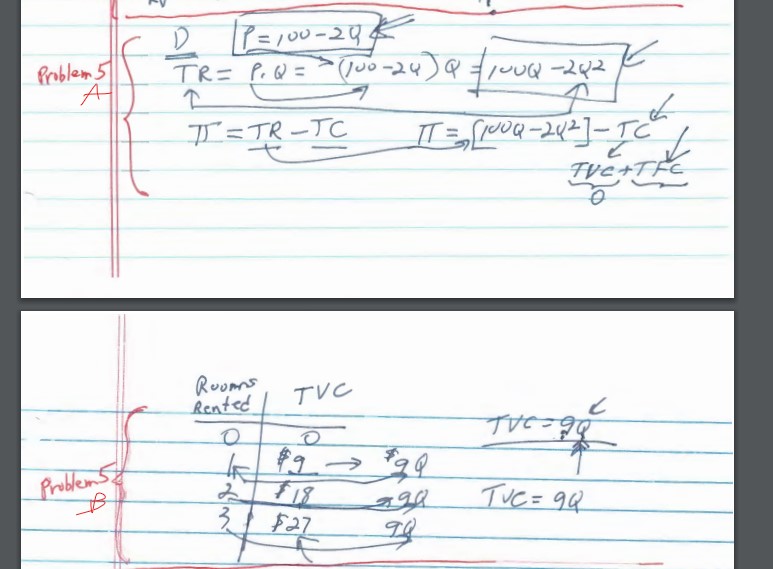 D P=100-2Q
Problem 5
A
TR = P.Q = (100-2Q)Q = 100Q-2Q2
π = TR - TC π = [100Q-2Q2] - TC
TVC + TFC
0
Rooms Rented TVC
0 0
1 $9 → $9Q
2 $18 → 9Q
3 $27 9Q
TVC = 9Q
TVC = 9Q
Problem 5
B